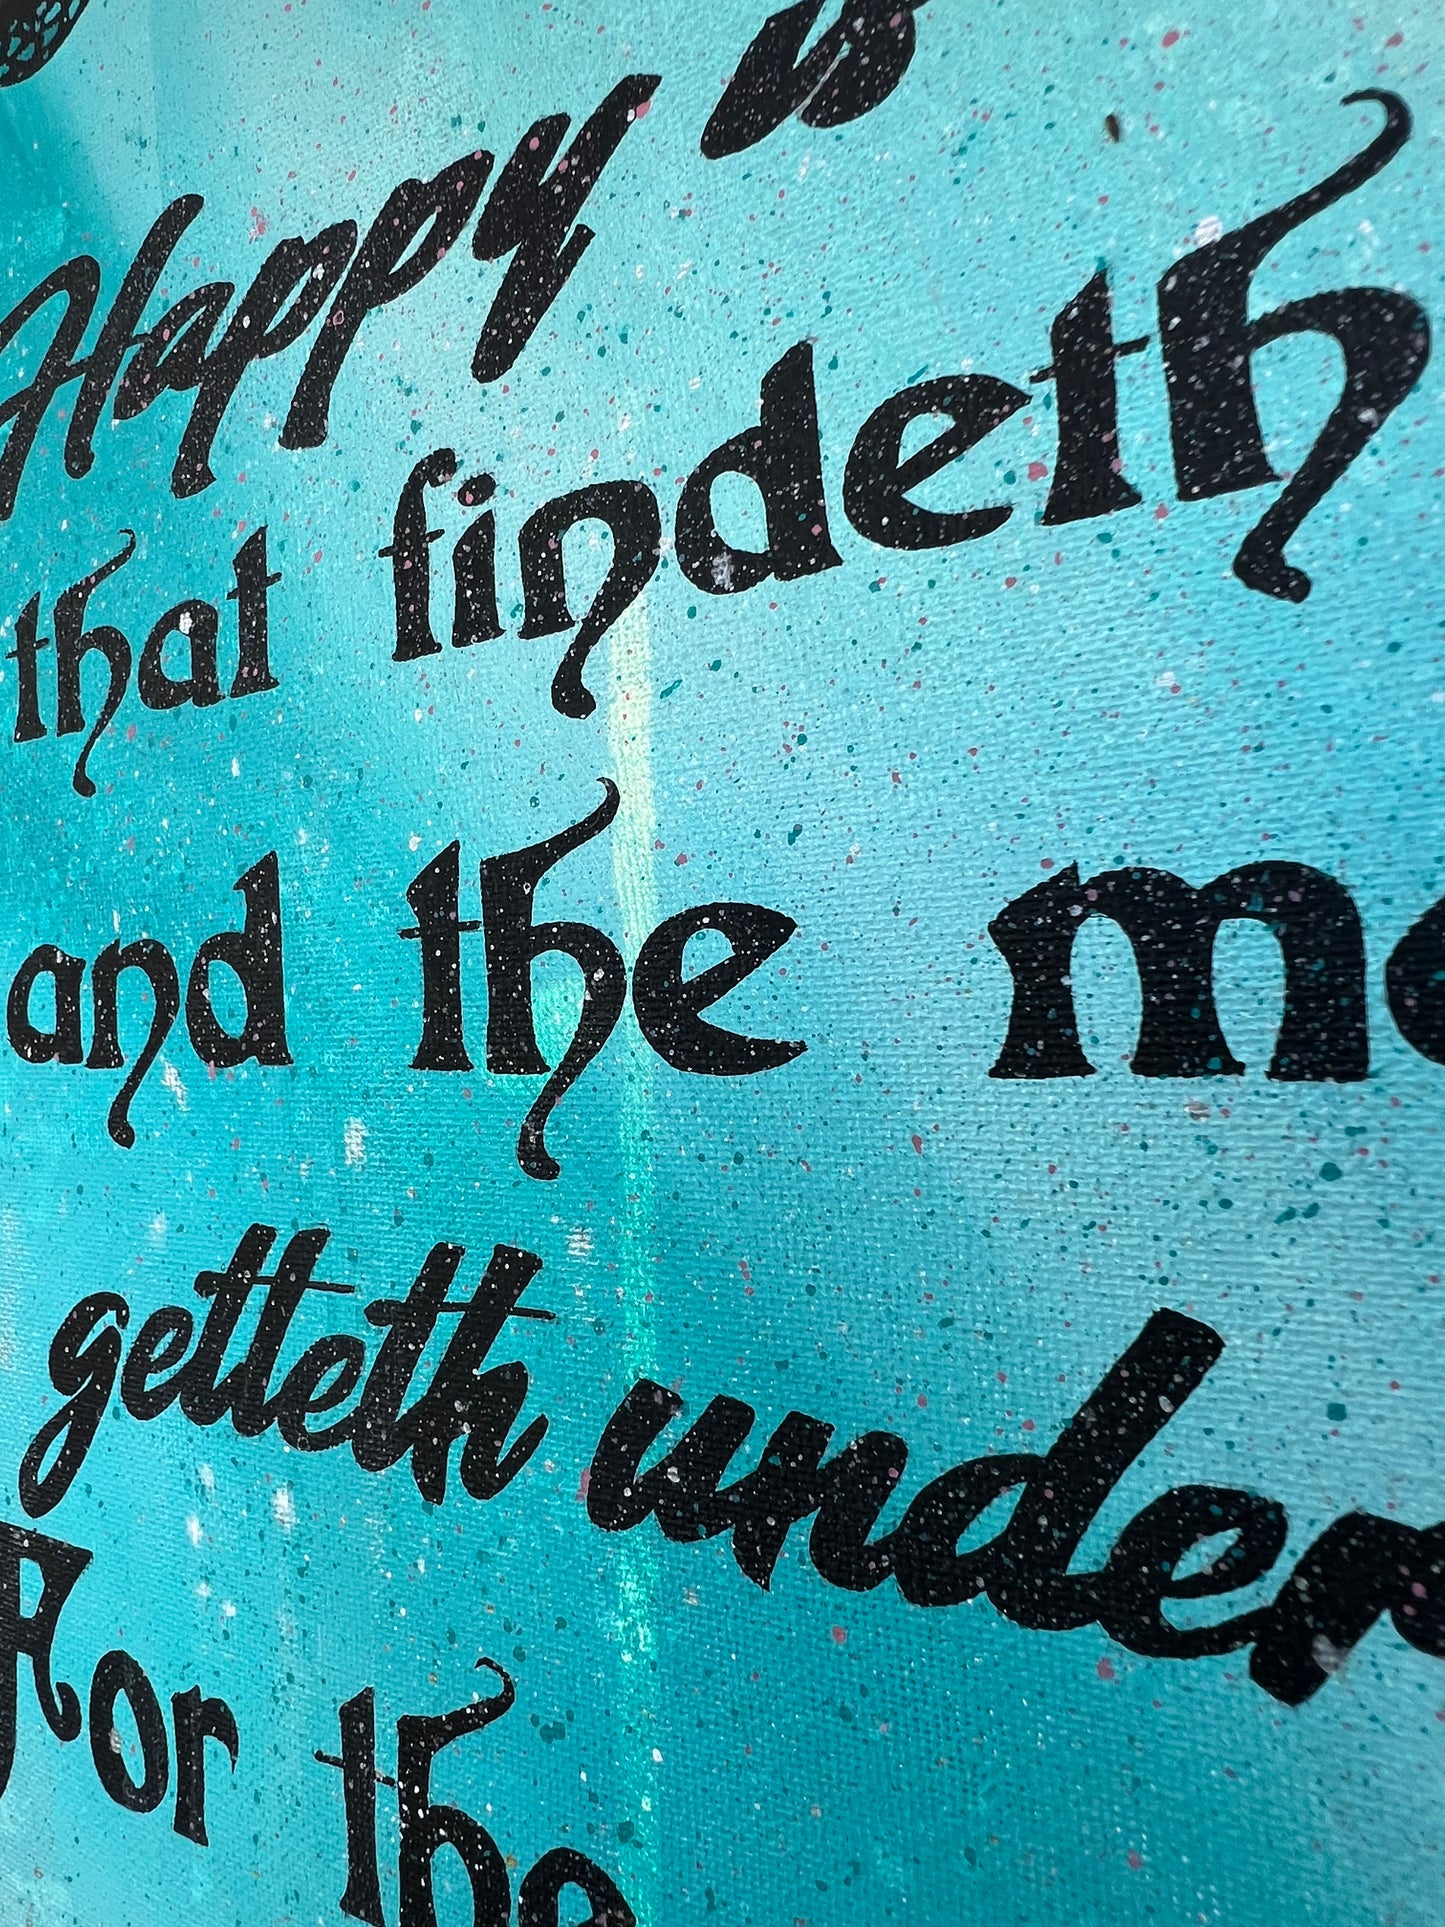 Happy is
that findeth
and the
getteth under
For the